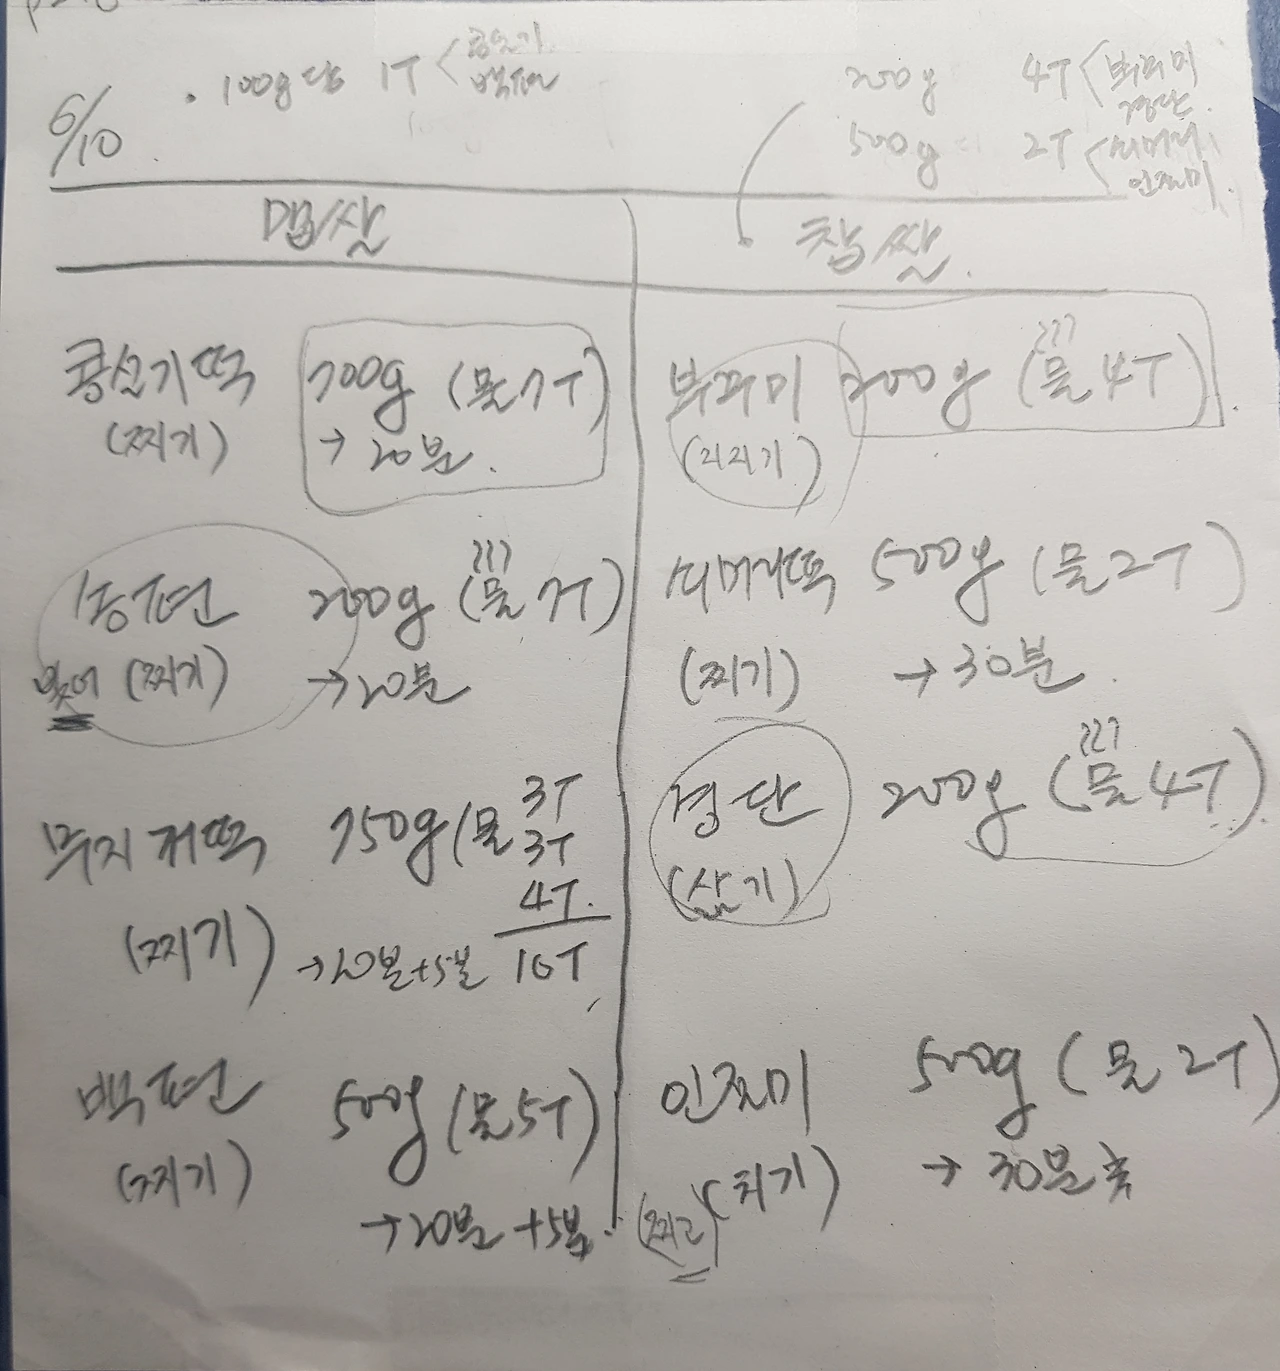 6/10
· 100g당 1T < 콩설기 백편
200g 4T < 부꾸미 경단
500g 2T < 쇠머리 인절미
맵쌀
찹쌀
콩설기떡 700g (물 7T)
(찌기) → 20분.
송편 200g (물 7T)
빚어 (찌기) → 20분
무지개떡 750g (물 3T
3T
4T.
10T
(찌기) → 20분+5분
백편 500g (물 5T)
(찌기) → 20분 +5분.
부꾸미 200g (물 4T)
(지지기)
쇠머리떡 500g (물 2T)
(찌기) → 30분.
경단 200g (물 4T)
(삶기)
인절미 500g (물 2T)
(찌고) (치기) → 30분